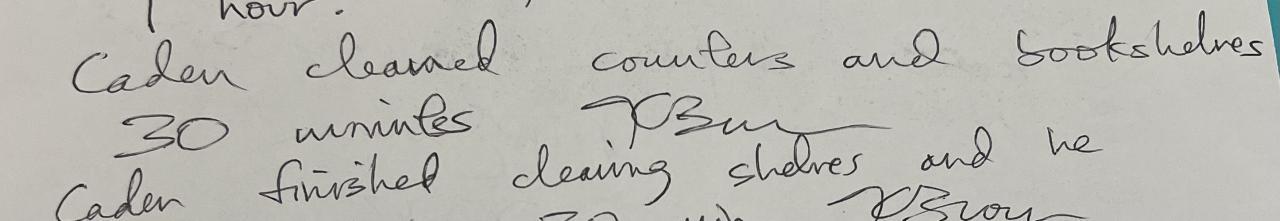 1 hour.
Caden cleaned counters and bookshelves
30 minutes
Caden finished cleaning shelves and he
30